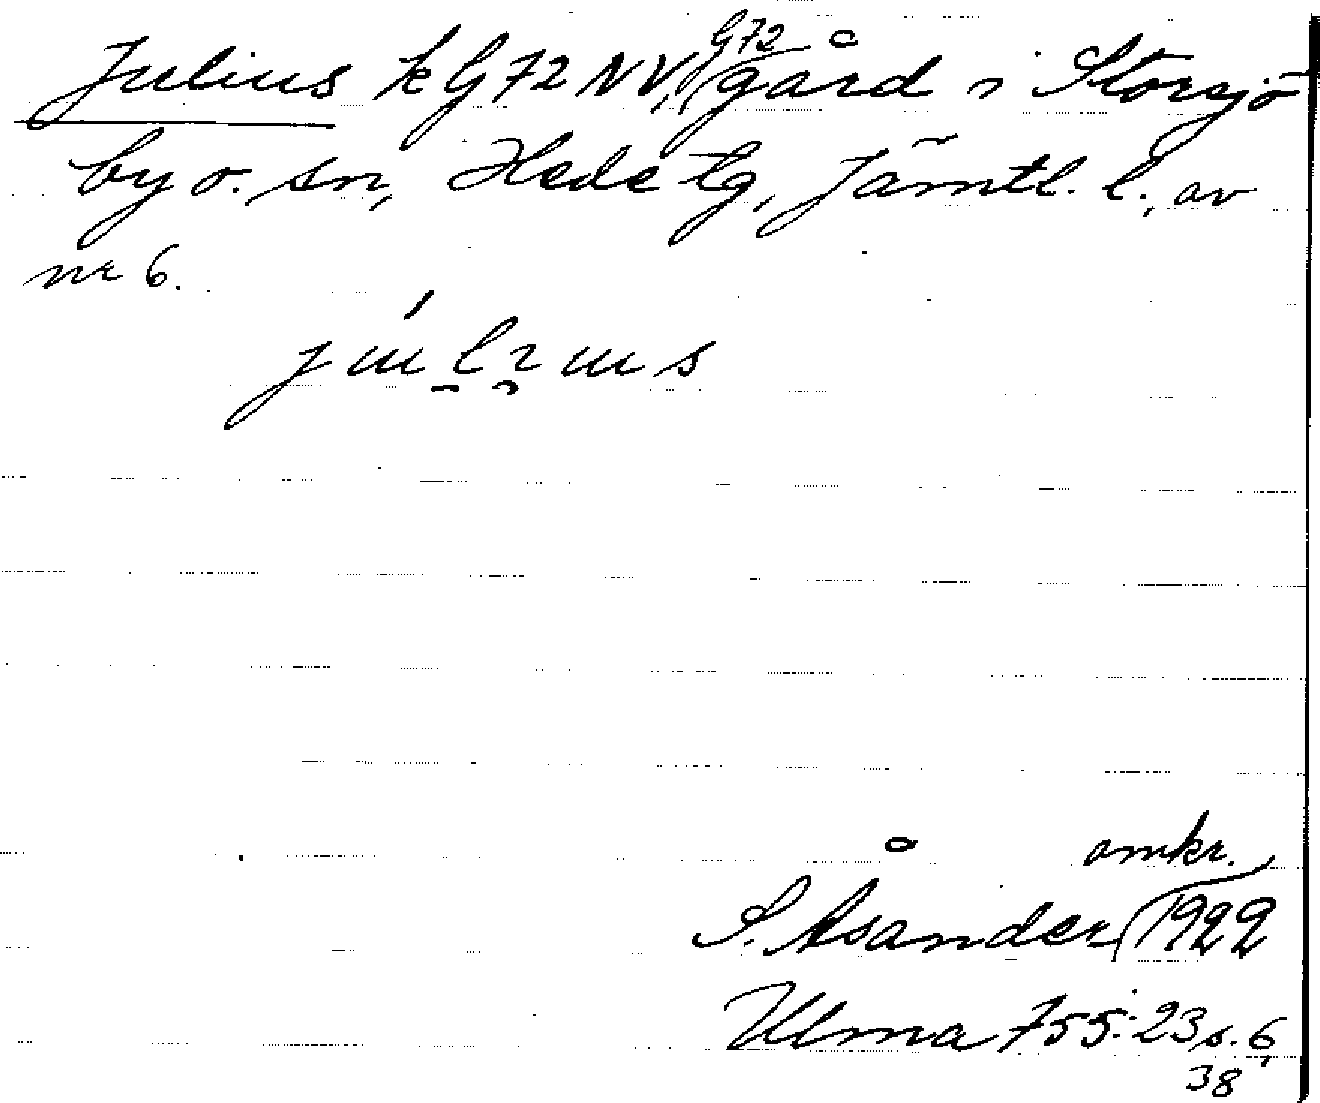 G72
Julius k G72 NV, gård i Storsjö
by o. sn, Hede tg, Jämtl. l., av
nr 6.
omkr.
S. Åsander 1922
Ulma 755:23 s. 6,
38